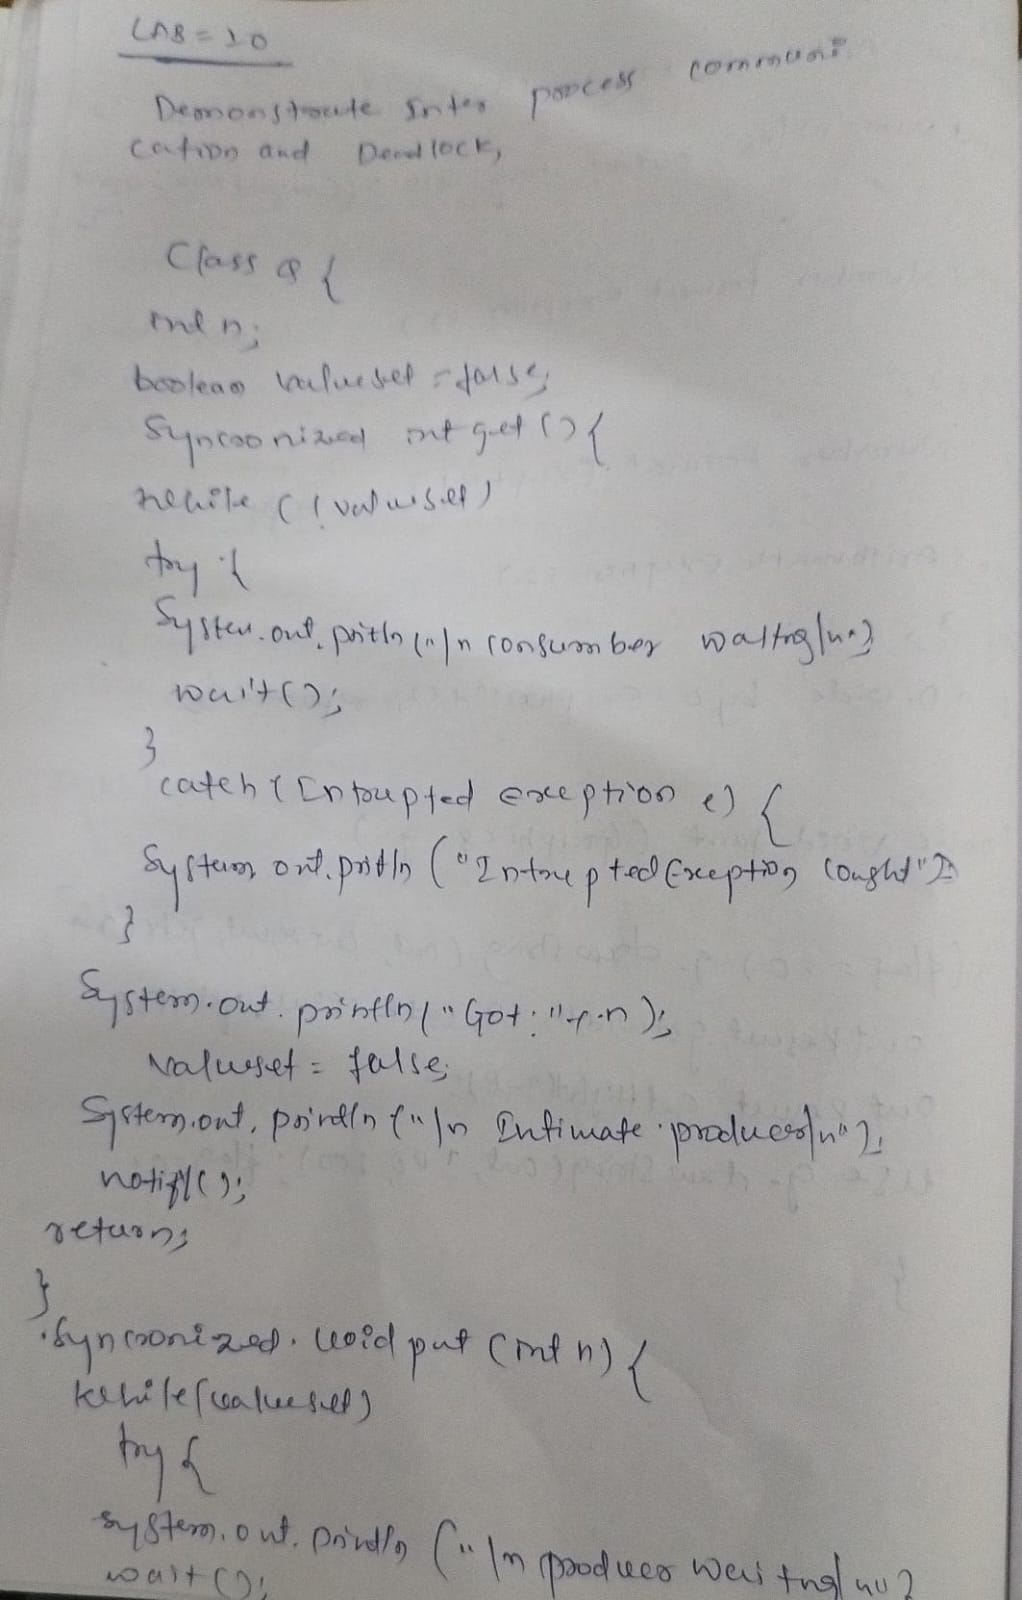 LAB = 10
Demonstrate Inter process communi
cation and Deadlock,
Class Q {
int n;
boolean valueset = false;
Syncronized int get () {
while ( ! valueset )
try {
System.out.println ("\n consumber waiting\n")
wait();
}
catch ( Intrupted exception e) {
System out.println ("Intrupted Exception cought");
}
System.out.println ("Got: "+n);
valueset = false;
System.out.println ("\n Intimate producer\n");
notify();
return;
}
Syncronized void put (int n) {
while (valueset)
try {
System.out.println ("\n producer waitng\n")
wait ();